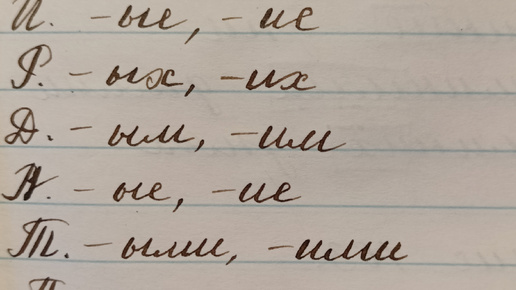 И. -ые, -ие
Р. -ых, -их
Д. -ым, -им
А. -ые, -ие
Т. -ыми, -ими
П